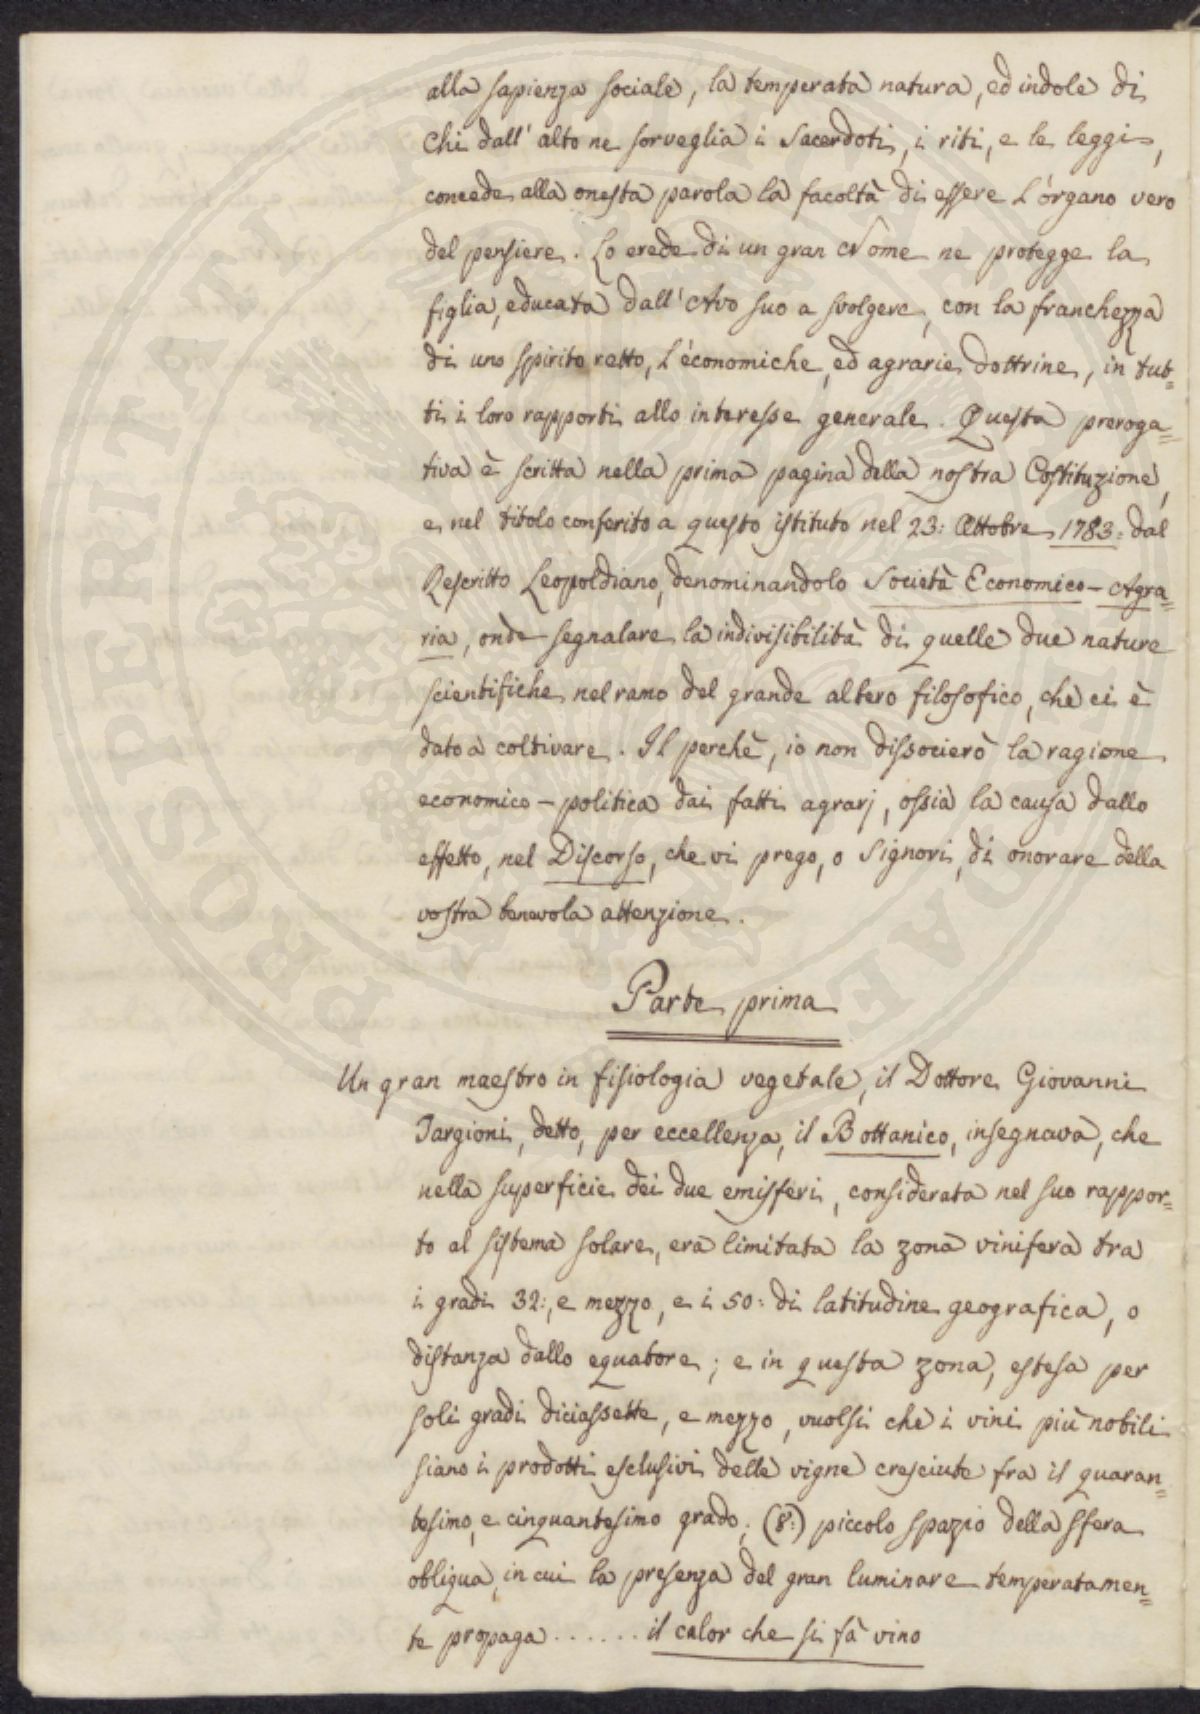 alla sapienza sociale, la temperata natura, ed indole di
chi dall' alto ne sorveglia i Sacerdoti, i riti, e le leggi,
concede alla onesta parola la facoltà di essere l'órgano vero
del pensiere. Lo erede di un gran Nome ne protegge la
figlia, educata dall' Avo suo a svolgere, con la franchezza
di uno spirito retto, l'économiche, ed agrarie dottrine, in tut=
ti i loro rapporti allo interesse generale. Questa preroga=
tiva è scritta nella prima pagina della nostra Costituzione,
e nel titolo conferito a questo istituto nel 23: Ottobre 1783: dal
Rescritto Leopoldiano, denominandolo Società Economico-Agra=
ria, onde segnalare la indivisibilità di quelle due nature
scientifiche nel ramo del grande albero filosofico, che ci è
dato a coltivare. Il perchè, io non dissocierò la ragione
economico-politica dai fatti agrarj, ossia la causa dallo
effetto, nel Discorso, che vi prego, o Signori, di onorare della
vostra benevola attenzione.
Parte prima
Un gran maestro in fisiologia vegetale, il Dottore Giovanni
Targioni, detto, per eccellenza, il Bottanico, insegnava, che
nella superficie dei due emisferi, considerata nel suo rappor=
to al sistema solare, era limitata la zona vinifera tra
i gradi 32:, e mezzo, e i 50: di latitudine geografica, o
distanza dallo equatore; e in questa zona, estesa per
soli gradi diciassette, e mezzo, vuolsi che i vini più nobili
siano i prodotti esclusivi delle vigne cresciute fra il quaran=
tesimo, e cinquantesimo grado; (8:) piccolo spazio della sfera
obliqua, in cui la presenza del gran luminare temperatamen=
te propaga ...... il calor che si fà vino
PROSPERITATI PUBLICAE AUGENDAE